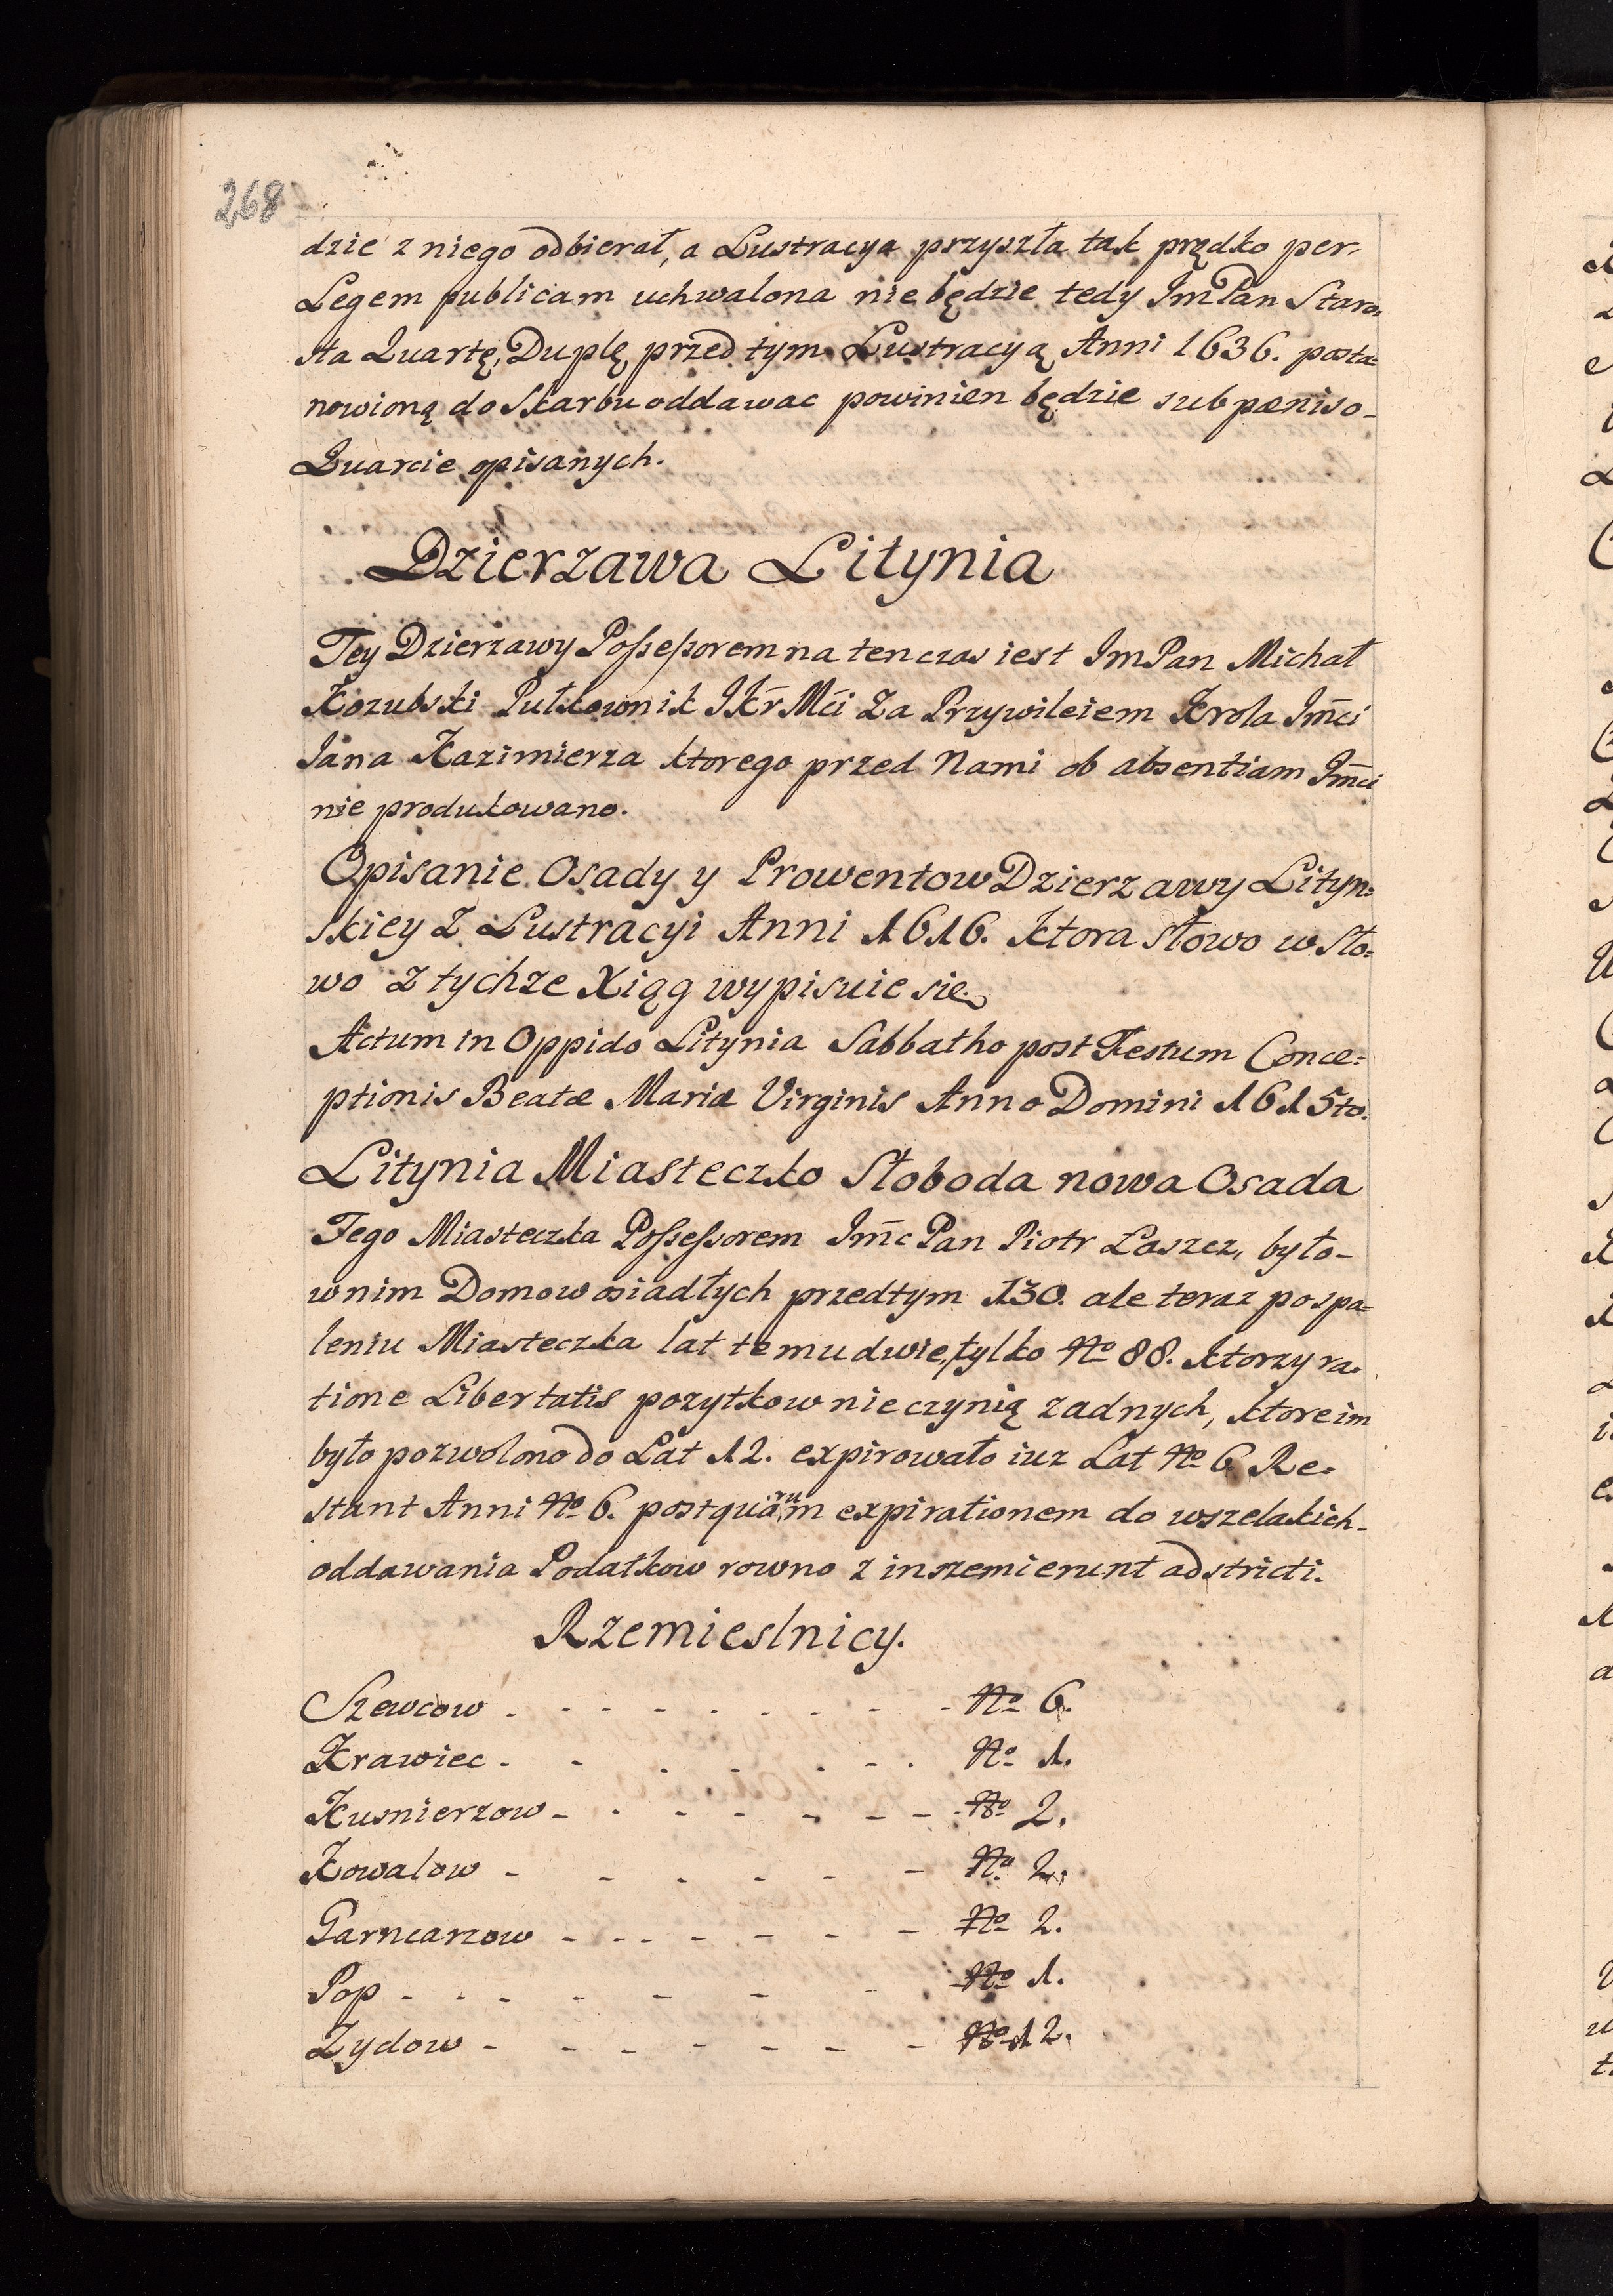 268
dzie z niego odbierał, a Lustracya przyszła tak prędko per
Legem publicam uchwalona nie będzie tedy Jm Pan Staro-
sta Quartę, Duplę przed tym Lustracyą Anni 1636. posta=
nowioną do Skarbu oddawac powinien będzie sub pœnis o-
Quarcie opisanych.
Dzierzawa Litynia
Tey Dzierzawy Possessorem na ten czas iest Jm Pan Michał
Kozubski Pułkownik JKr Mci Za Przywileiem Krola Jmci
Jana Kazimierza ktorego przed Nami ob absentiam Jmci
nie produkowano.
Opisanie Osady y Prowentow Dzierzawy Lityn=
skiey Z Lustracyi Anni 1616. ktora słowo w sło=
wo z tychze Xiąg wypisuie się
Actum in Oppido Litynia Sabbatho post Festum Conce=
ptionis Beatæ Mariæ Virginis Anno Domini 1615to.
Litynia Miasteczko Słoboda nowa Osada
Tego Miasteczka Possessorem Jmc Pan Piotr Laszcz, było-
w nim Domow osiadłych przedtym 130. ale teraz po spa=
leniu Miasteczka lat temu dwie, tylko No 88. ktorzy ra-
tione Libertatis pozytkow nie czynią zadnych, ktore im
było pozwolono do Lat 12. expirowało iuz Lat No 6 Re-
stant Anni No 6. post quarum expirationem do wszelakich-
oddawania Podatkow rowno z inszemi erunt adstricti.
Rzemieslnicy.
Szewcow - - - - - - - - - No 6.
Krawiec - - - - - - - No 1.
Kusnierzow - - - - - - - - No 2.
Kowalow - - - - - - No 2.
Garncarzow - - - - - - - - No 2.
Pop - - - - - - - No 1.
Zydow - - - - - - - No 12.